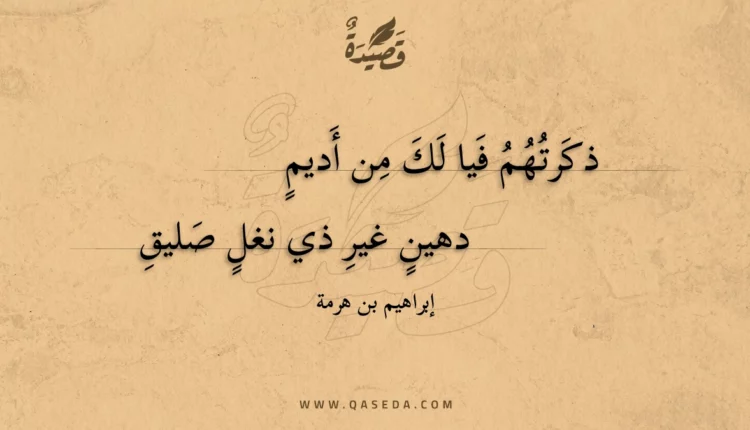 قَصِيدَةٌ
ذكَرتُهُمُ فَيا لَكَ مِن أَديمٍ
دهينٍ غيرِ ذي نغلٍ صَليقِ
إبراهيم بن هرمة
WWW.QASEDA.COM